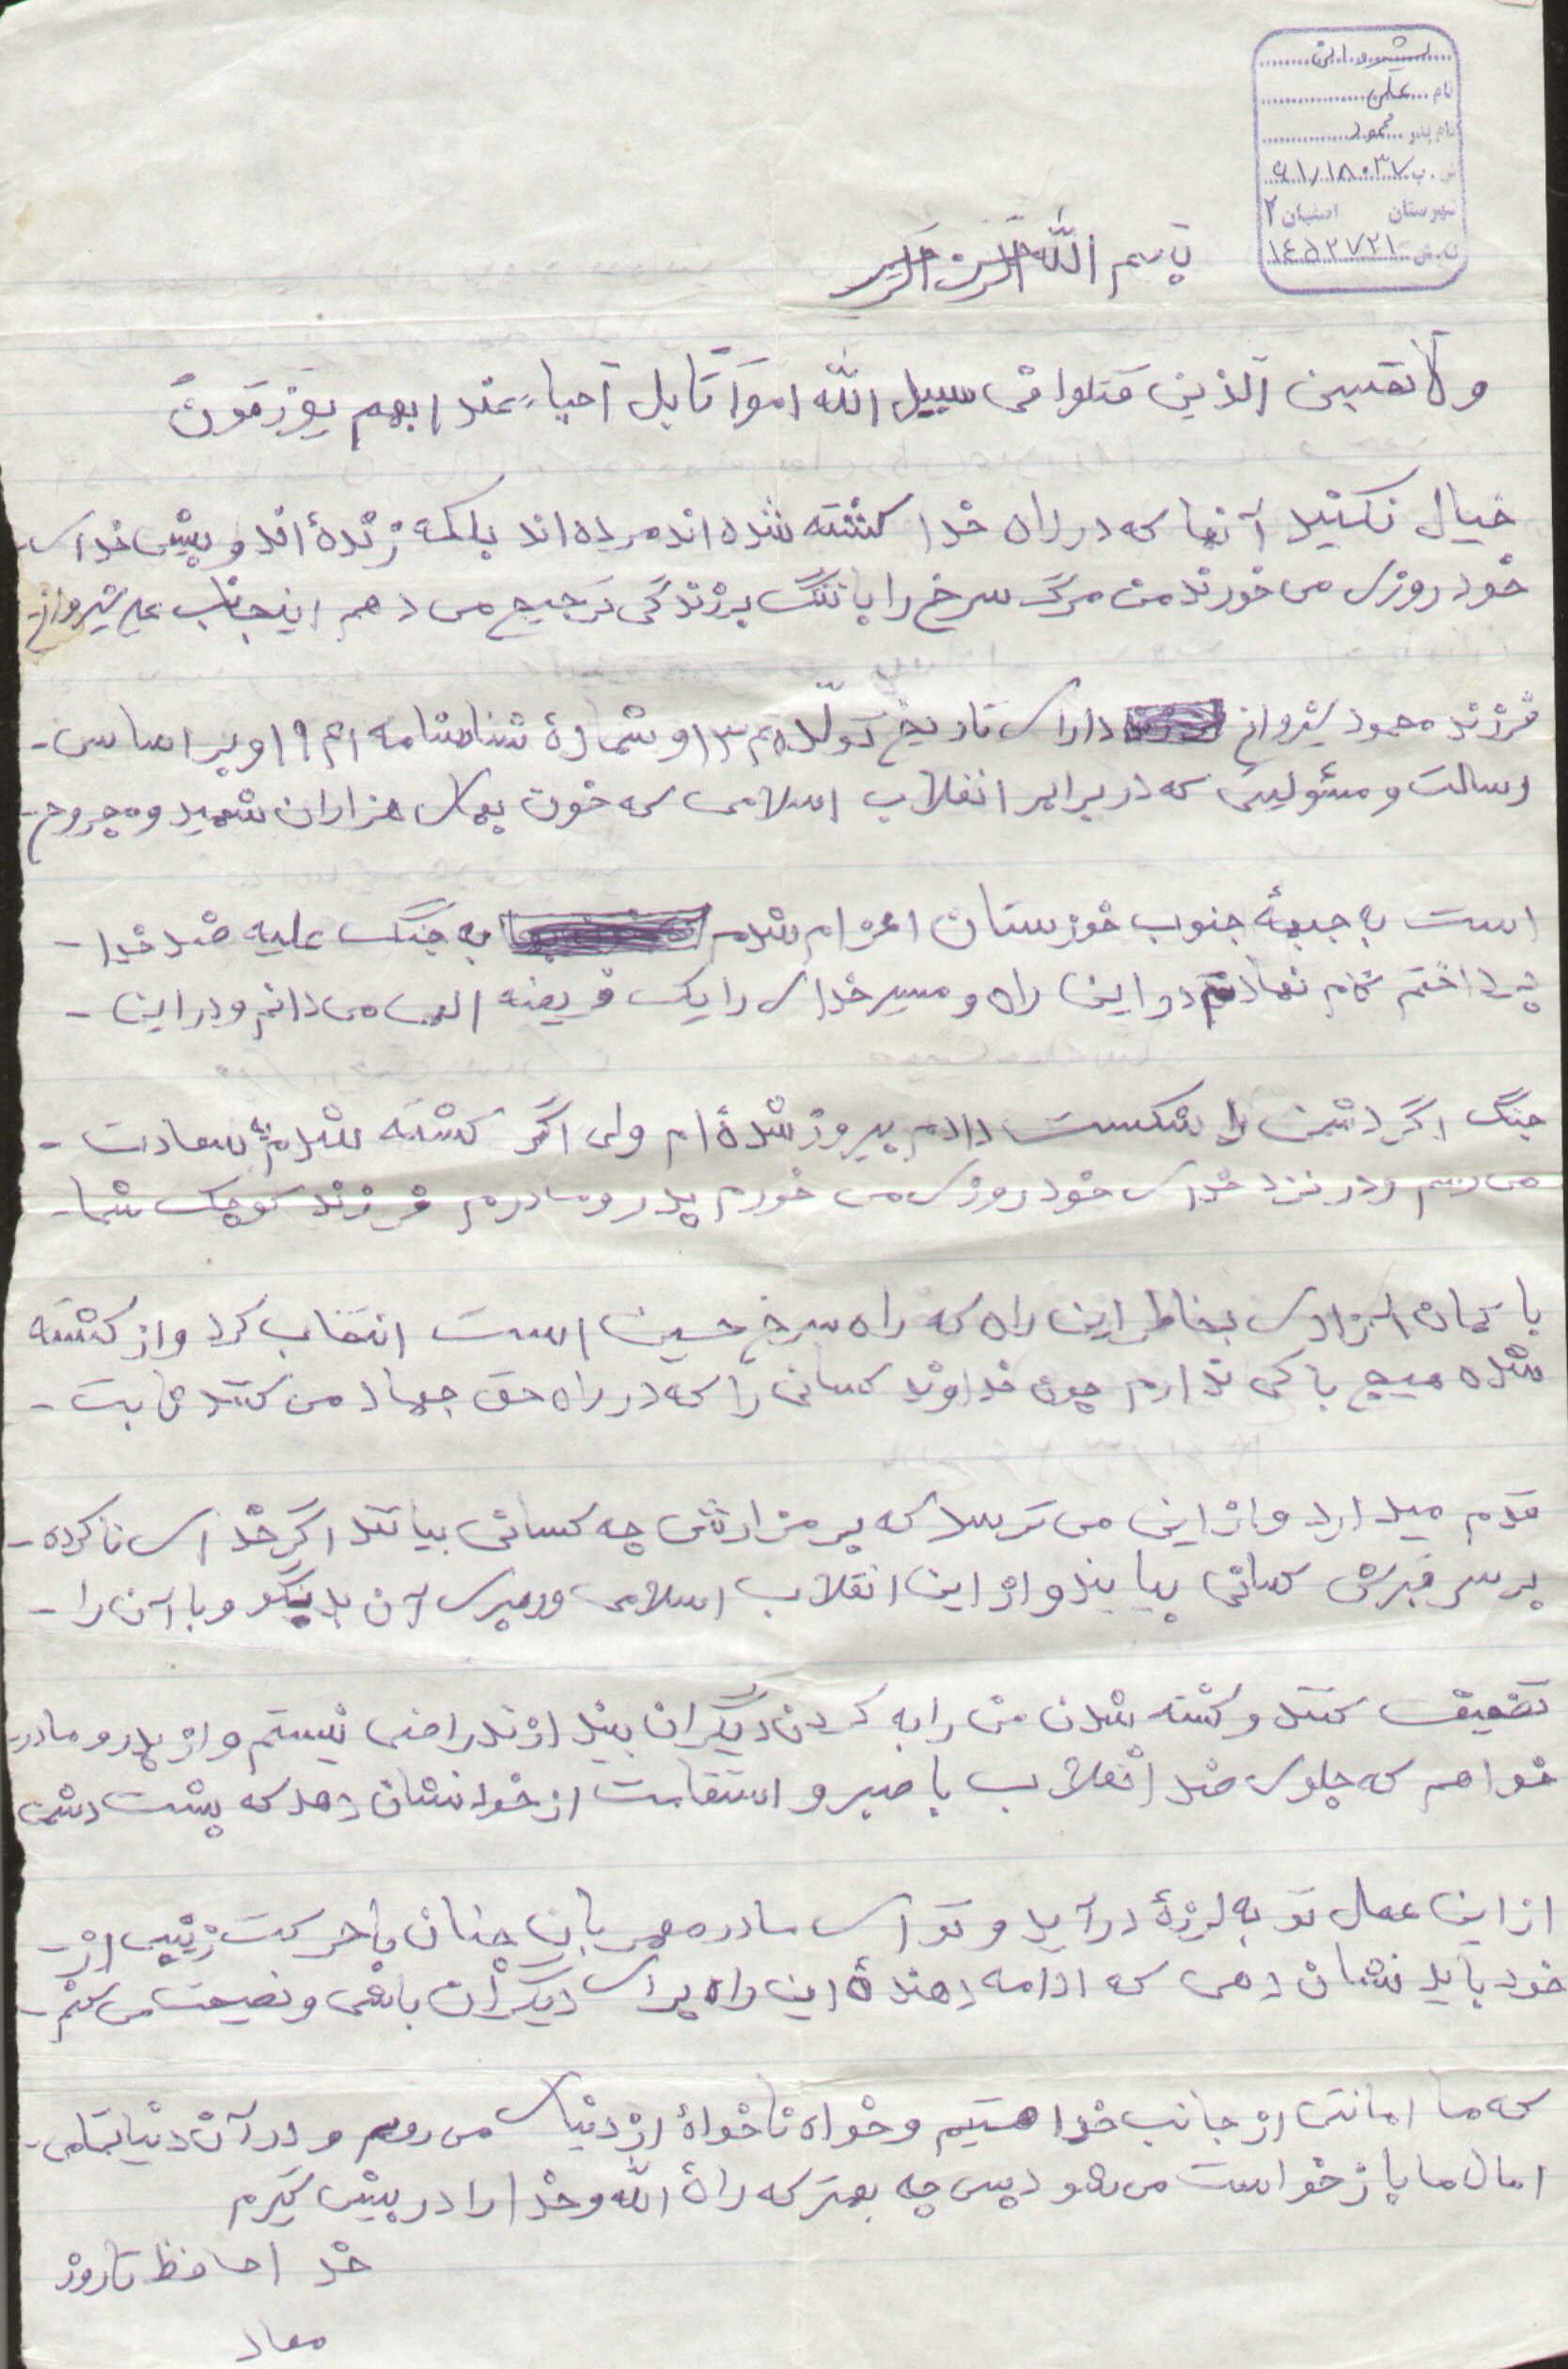 شیروانی
نام علی
نام پدر محمود
ش.پ ۶۱/۱۸۰۳۷
شهرستان اصفهان ۲
ک.ش ۱۴۵۲۷۲۱
بسم الله الرحمن الرحیم
ولا تحسبن الذین قتلوا فی سبیل الله امواتا بل احیاء عند ربهم یرزقون
خیال نکنید آنها که در راه خدا کشته شده اند مرده اند بلکه زندهٔ اند و پیش خدای
خود روزی می خورند من مرگ سرخ را با ننگ بر زندگی ترجیح می دهم اینجانب علی شیروانی
فرزند محمود شیروانی دارای تاریخ تولّد و شمارهٔ شناسنامه و بر اساس -
رسالت و مسئولیتی که در برابر انقلاب اسلامی که خون بهای هزاران شهید و مجروح -
است به جبههٔ جنوب خوزستان اعزام شدم به جنگ علیه ضد خدا -
پرداختم گام نهادنم در این راه و مسیر خدای را یک فریضه الهی می دانم و در این -
جنگ اگر دشمن را شکست دادم پیروز شدهٔ ام ولی اگر کشته شدم به سعادت -
می رسم و در نزد خدای خود روزی می خورم پدر و مادرم فرزند کوچک شما -
با کمان آزادی بخاطر این راه که راه سرخ حسین است انتخاب کرد و از کشته
شده هیچ باکی ندارم چون خداوند کسانی را که در راه حق جهاد می کنند ثابت -
قدم میدارد و از این می ترسد که بر مزارش چه کسانی بیانند اگر خدای ناکرده -
بر سر قبرش کسانی بیایند و از این انقلاب اسلامی و رهبری آن بد بگو و با آن را -
تضعیف کنند و کشته شدن من را به گردن دیگران بیندازند راضی نیستم و از پدر و مادر
خواهم که جلوی ضد انقلاب با صبر و استقامت از خود نشان دهد که پشت دشمن
از این عمل تو به لرزهٔ درآید و تو ای مادر مهربان چنان با حرکت زینبی از -
خود باید نشان دهی که ادامه دهندهٔ این راه برای دیگران باشی و نصیحت می کنم -
که ما امانتی از جانب خدا هستیم و خواه ناخواهٔ از دنیای می رویم و در آن دنیا تمامی -
امال ما باز خواست می شود پس چه بهتر که راهٔ الله و خدا را در پیش گیرم
خدا حافظ تا روز
معاد